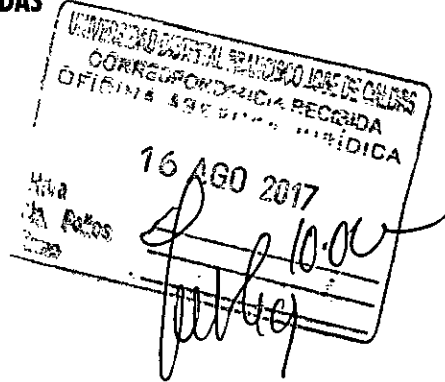 DAS
UNIVERSIDAD DISTRITAL FRANCISCO JOSE DE CALDAS
CORRESPONDENCIA RECIBIDA
OFICINA ASESORA JURÍDICA
16 AGO 2017
Hora
10:00
No. Folios